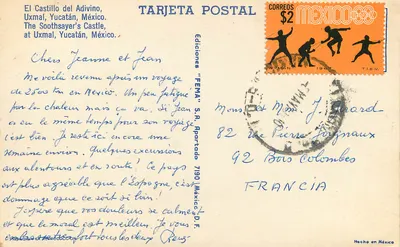 El Castillo del Adivino,
Uxmal, Yucatán, México.
The Soothsayer's Castle,
at Uxmal, Yucatán, México.
TARJETA POSTAL
Chers Jeanne et Jean
Me voilà revenu après un voyage
de en Mexico. Un peu fatigué
par la chaleur mais ça va. Si Jean
en en le même temps pour son voyage
c'est bien. Je reste ici encore une
semaine environ. Quelques excursions
aux alentours et en route! Ce pays
est plus agréable que l'Espagne, c'est
dommage que ce soit si loin!
J'espère que vos douleurs se calment
et que le moral est meilleur. Je vous
embrasse tous les deux
Ediciones "FEMA" S.R. Apartado 7190 (México) D.F.
CORREOS
$2
MEXICO
Monsieur Mme J.
82 rue Pierre
92 Bois Colombes
FRANCIA
Hecho en México